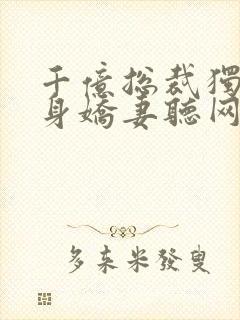 千億总裁獨
身嬌妻聽网
多来米發叟